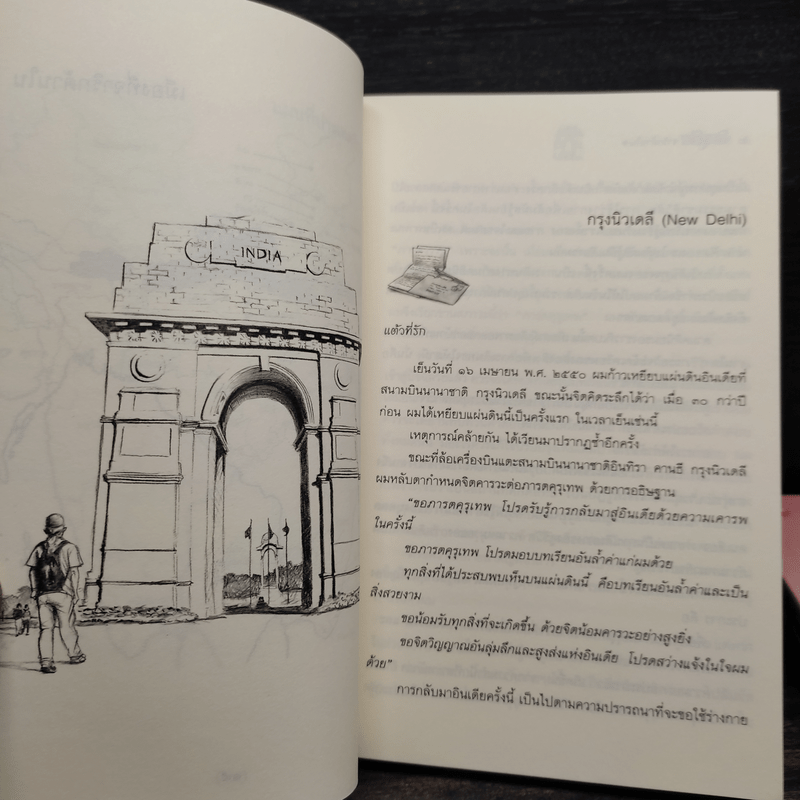 INDIA
กรุงนิวเดลี (New Delhi)
แต้วที่รัก
เย็นวันที่ ๑๖ เมษายน พ.ศ. ๒๕๕๐ ผมก้าวเหยียบแผ่นดินอินเดียที่
สนามบินนานาชาติ กรุงนิวเดลี ขณะนั้นจิตคิดระลึกได้ว่า เมื่อ ๓๐ กว่าปี
ก่อน ผมได้เหยียบแผ่นดินนี้เป็นครั้งแรก ในเวลาเย็นเช่นนี้
เหตุการณ์คล้ายกัน ได้เวียนมาปรากฏซ้ำอีกครั้ง
ขณะที่ล้อเครื่องบินแตะสนามบินนานาชาติอินทิรา คานธี กรุงนิวเดลี
ผมหลับตากำหนดจิตคารวะต่อภารตคุรุเทพ ด้วยการอธิษฐาน
“ขอภารตคุรุเทพ โปรดรับรู้การกลับมาสู่อินเดียด้วยความเคารพ
ในครั้งนี้
ขอภารตคุรุเทพ โปรดมอบบทเรียนอันล้ำค่าแก่ผมด้วย
ทุกสิ่งที่ได้ประสบพบเห็นบนแผ่นดินนี้ คือบทเรียนอันล้ำค่าและเป็น
สิ่งสวยงาม
ขอน้อมรับทุกสิ่งที่จะเกิดขึ้น ด้วยจิตน้อมคารวะอย่างสูงยิ่ง
ขอจิตวิญญาณอันลุ่มลึกและสูงส่งแห่งอินเดีย โปรดสว่างแจ้งในใจผม
ด้วย”
การกลับมาอินเดียครั้งนี้ เป็นไปตามความปรารถนาที่จะขอใช้ร่างกาย